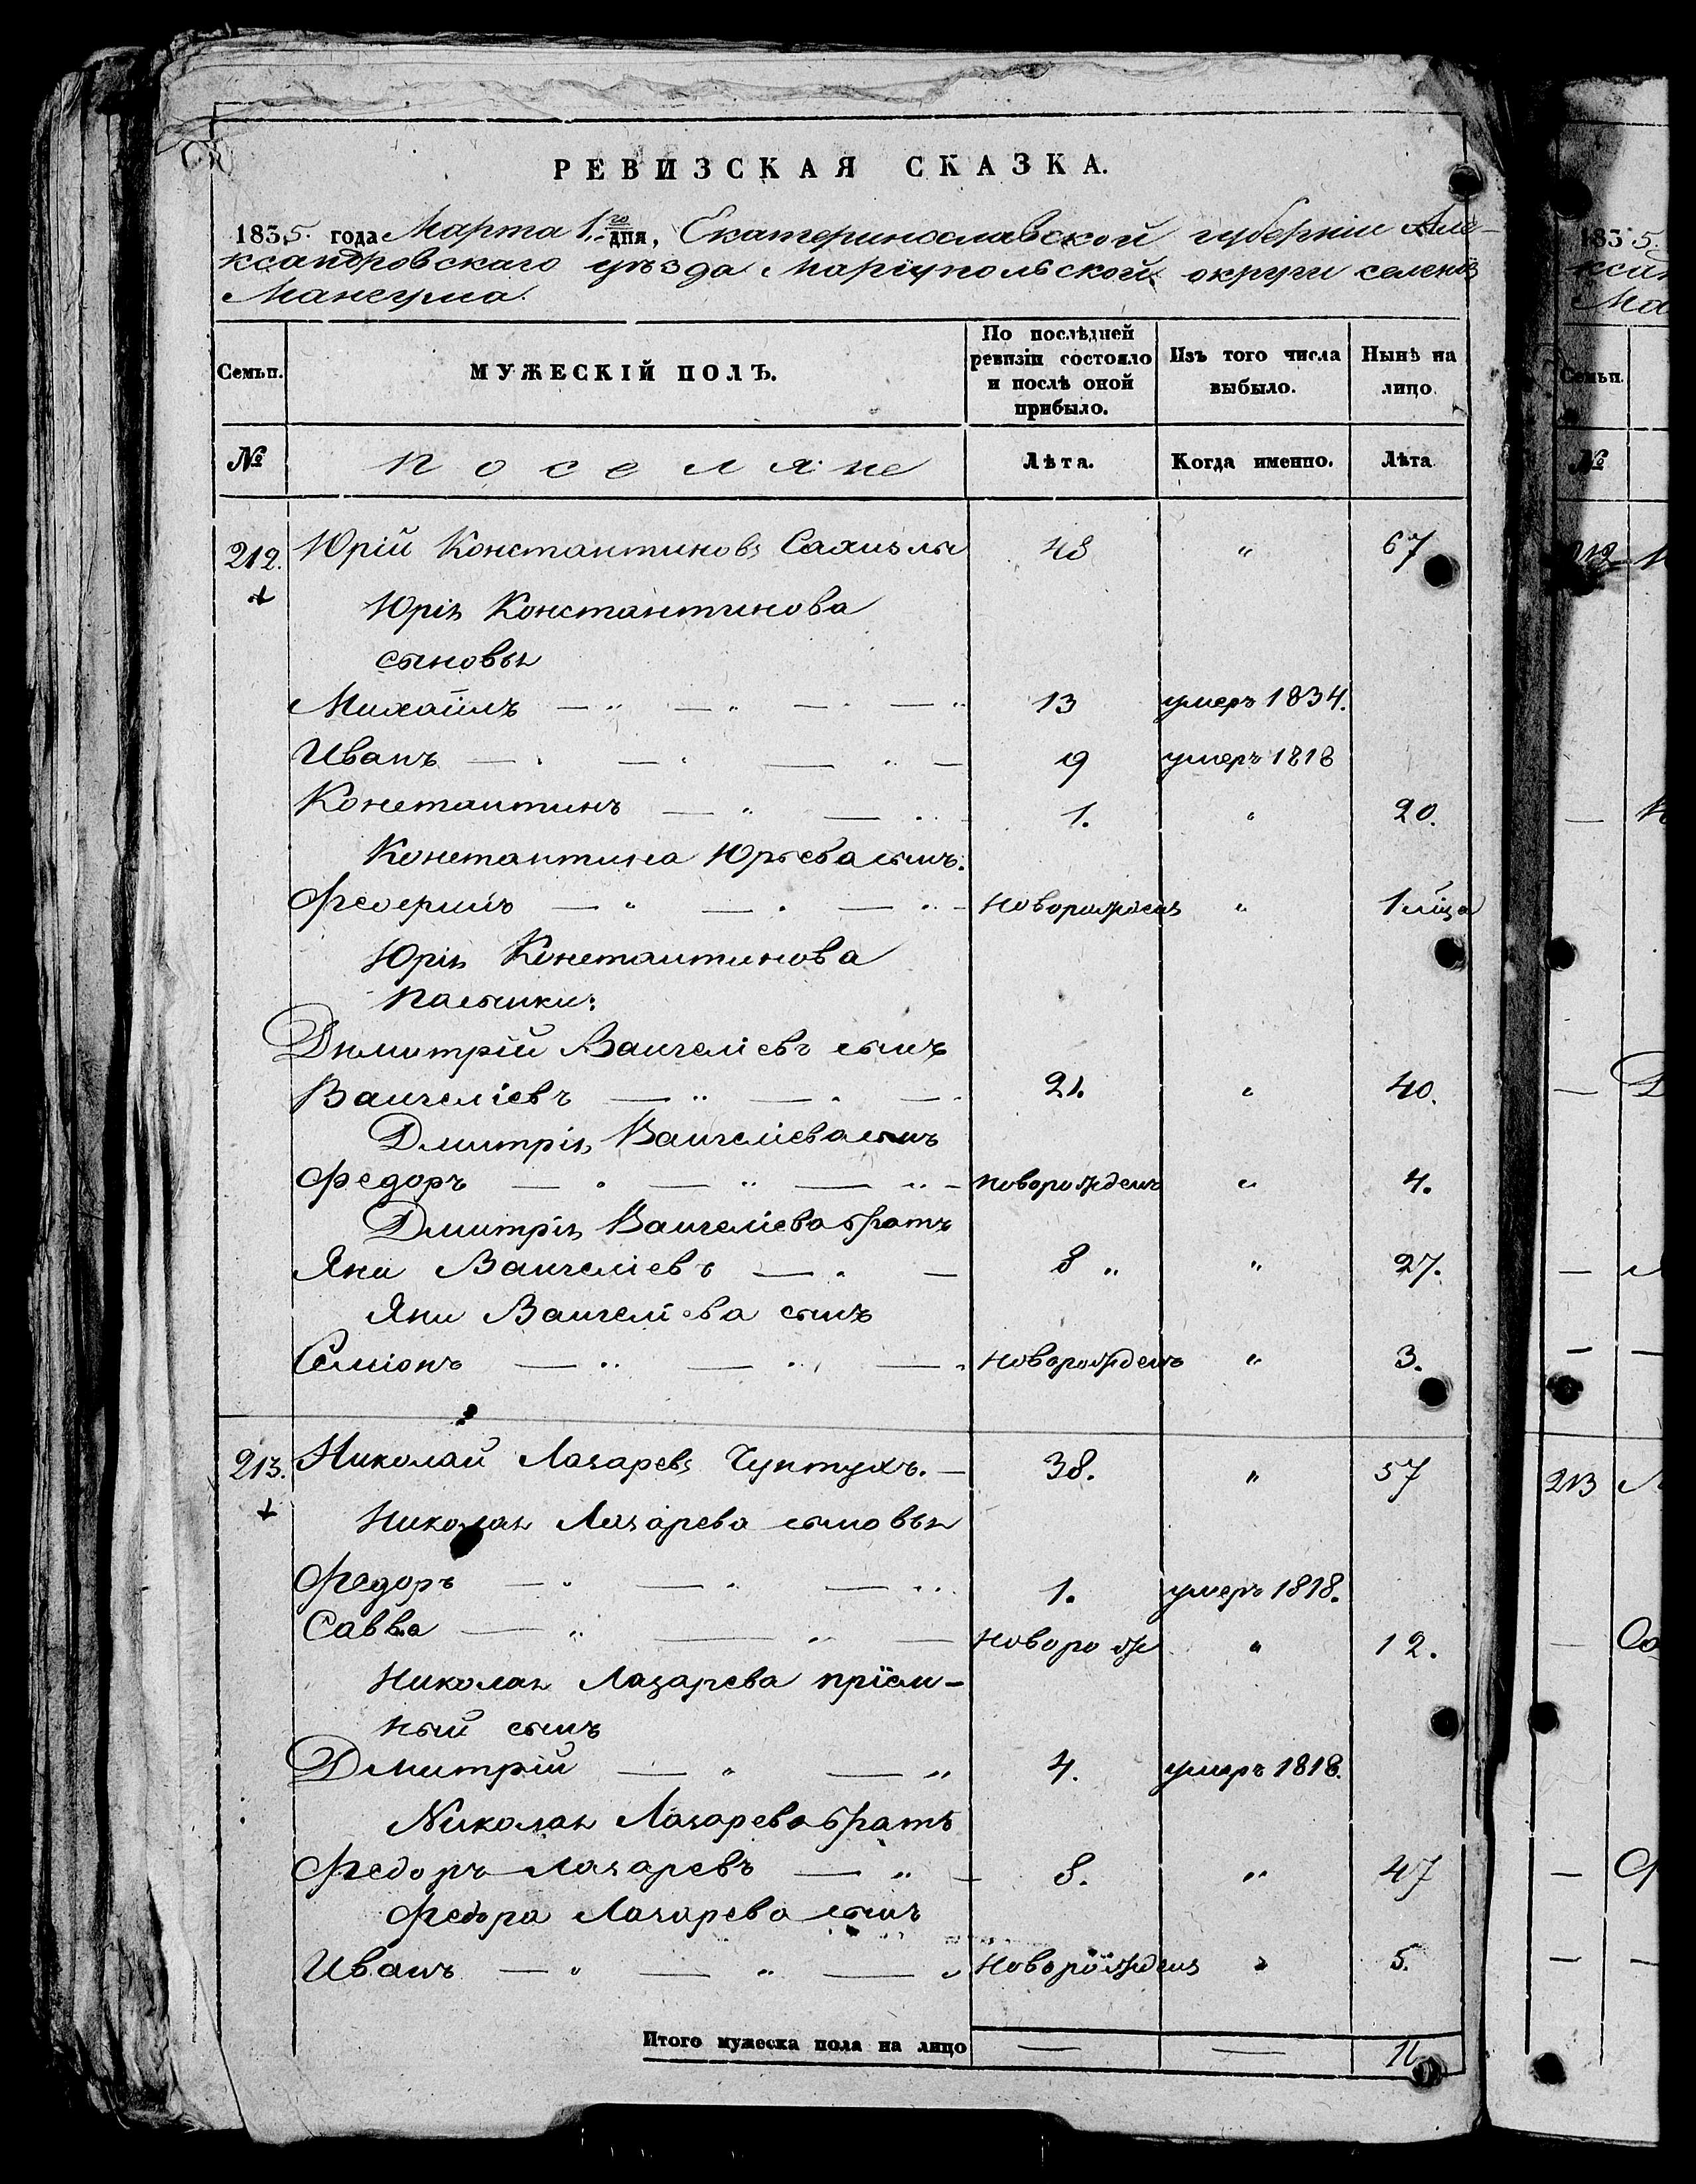 РЕВИЗСКАЯ СКАЗКА.
1835. года Марта 1го дня, Екатеринославской губерніи Але-
ксандровскаго уѣзда Маріупольской округи селенія
Мангуша.
Семьи. МУЖЕСКІЙ ПОЛЪ. По послѣдней ревизіи состояло и послѣ оной прибыло. Изъ того числа выбыло. Нынѣ на лицо.
№ поселяне Лѣта. Когда именно. Лѣта.
212. Юрій Константиновъ 48 " 67
Юрія Константинова
сыновья
Михайлъ — " — " — . — " 13 умеръ 1834.
Иванъ — . — . — " — 19 умеръ 1818
Константинъ — " — . . 1. " 20.
Константина Юрьева сынъ:
— " — . — " - новорожденъ " 1 мѣца
Юрія Константинова
Дмитрій Вангеліевъ сынъ
Вангеліевъ — " — . — . 21. " 40.
Дмитрія Вангеліева сынъ
Федоръ — . — " — " - новорожденъ " 4.
Дмитрія Вангеліева братъ
Яни Вангеліевъ — . — 8 " " 27.
Яни Вангеліева сынъ
Семіонъ — " — . — . новорожденъ " 3.
213. Николай Лазаревъ Чунтухъ. — 38. " 57
Николая Лазарева сыновья
Федоръ — . — . — " . 1. умеръ 1818.
Савва — " — " — новорож " 12.
Николая Лазарева пріем-
ный сынъ
Дмитрій — " — " 4. умеръ 1818.
Николая Лазарева братъ
Федоръ Лазаревъ — " - 8. " 47
Федора Лазарева сынъ
Иванъ — " — " — " новорожденъ " 5.
Итого мужеска пола на лицо — — 11
1835.
ксан
Ма
Семьи.
№
212
Д
213